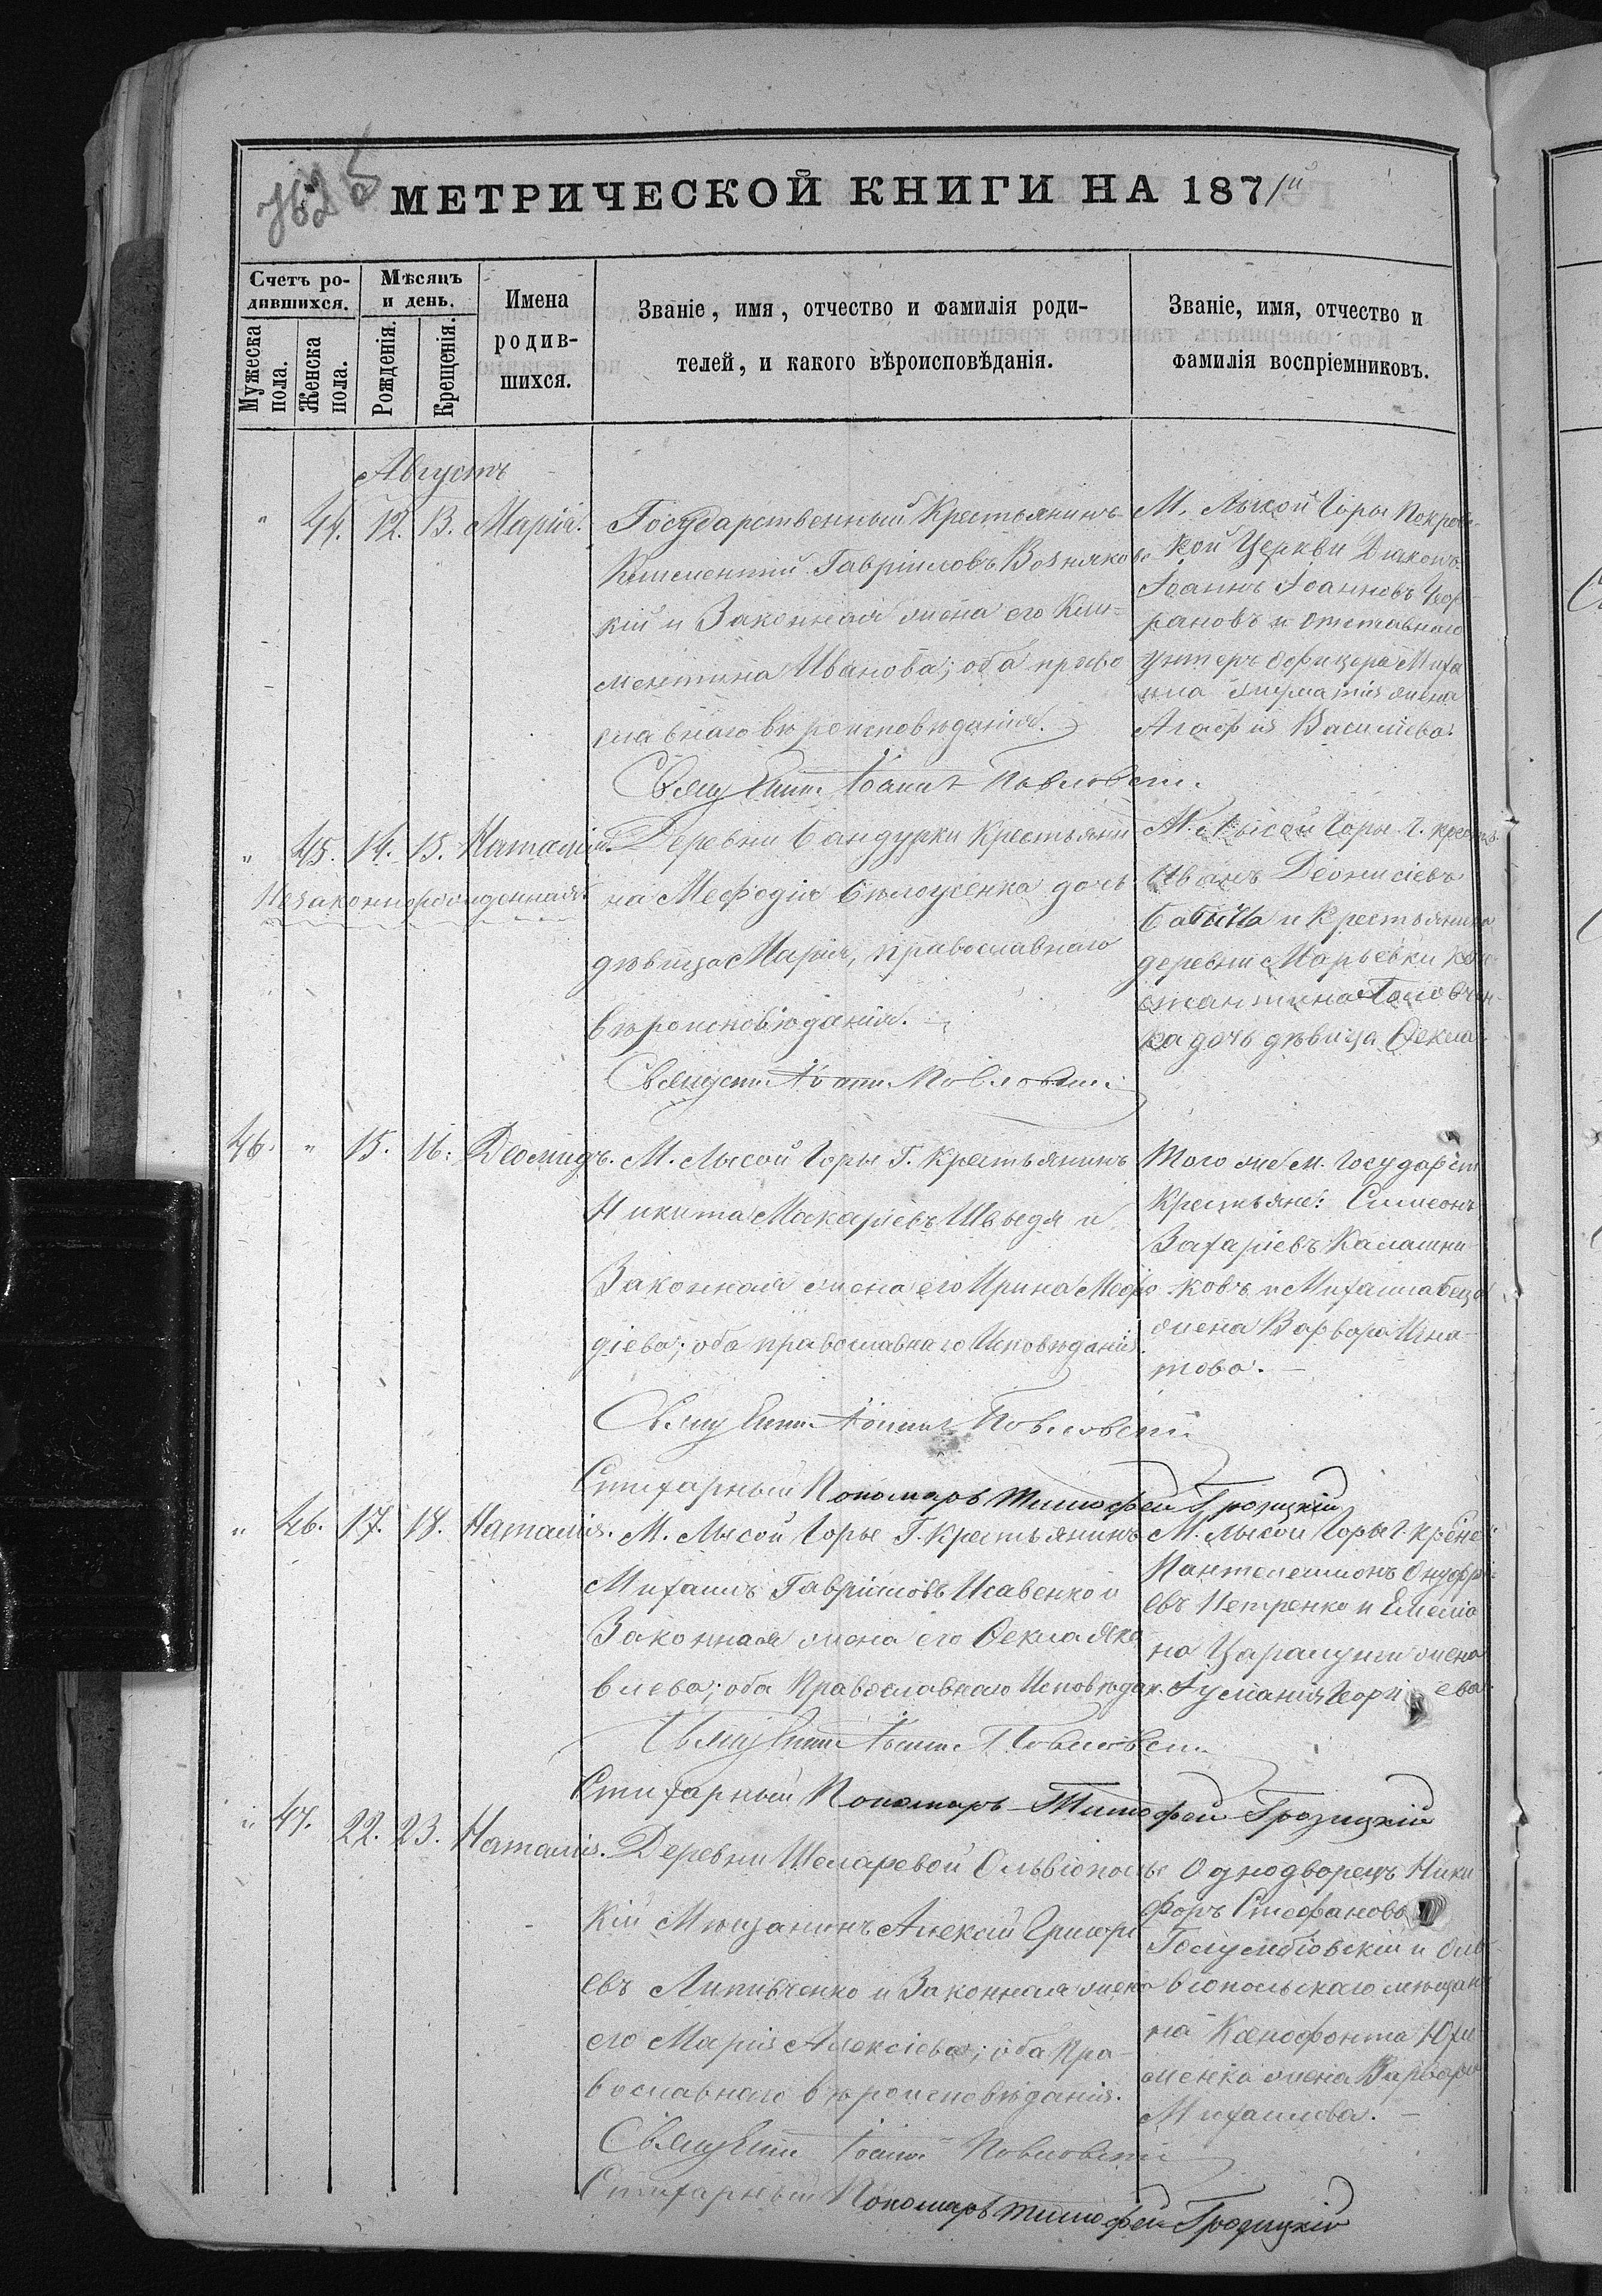 МЕТРИЧЕСКОЙ КНИГИ НА 1871й
Счетъ ро-
дившихся.
Мужеска
пола.
Женска
пола.
Мѣсяцъ
и день.
Рожденія.
Крещенія.
Имена
родив-
шихся.
Званіе, имя, отчество и фамилія роди-
телей, и какого вѣроисповѣданія.
Званіе, имя, отчество и
фамилія воспріемниковъ.
Августъ
" 44. 12. 13. Марія.
Государственный Крестьянинъ
Климентій Гавріиловъ
кій и Законная жена его Кли-
ментина Иванова; оба право
славнаго вѣроисповѣданія.
Священ. Іоаннъ Павловскій
М. Лысой Горы Покров-
кой Церкви Діаконъ
Іоаннъ Іоанновъ
и отставнаго
унтеръ офицера Миха
ила жена
Агафія Василіева.
" 45. 14. 15. Наталія.
Незаконнорожденная.
Деревни Бандурки Крестьяни
на Мефодія Бѣлоусенка дочь
дѣвица Марія, православнаго
вѣроисповѣданія.
Священ. Іоаннъ Павловскій
М. Лысой Горы Г. крест
Иванъ Діонисіевъ
и Крестьянина
деревни Марьевки Кон
стантина Головчен-
ка дочь дѣвица Ѳекла.
46. " 15. 16. Деомидъ.
М. Лысой Горы Г. Крестьянинъ
Никита Макаріевъ Шведя и
Законная жена его Ирина Мефо
діева; оба православнаго Исповѣданія.
Священ. Іоаннъ Павловскій
Стихарный Пономарь Тимофей Грозицкій
Того же м. Государст
Крестьяне: Симеонъ
Захаріевъ Калашни
ковъ и Михаила
жена Варвара Игна-
това. —
" 46. 17. 18. Наталія.
М. Лысой Горы Г. Крестьянинъ
Михаилъ Гавріиловъ Исавенко и
Законная жена его Ѳекла Яко
влева; оба Православнаго Исповѣдан.
Священ. Іоаннъ Павловскій
Стихарный Пономарь Тимофей Грозицкій
М. Лысой Горы Г.
Пантелеимонъ Онуфрі
евъ Петренко и Емелія
на жена
Іуліанія Георгіева.
" 47. 22. 23. Наталія.
Деревни Шеларевой Ольвіопольс
кій Мѣщанинъ Алексій Григорі
евъ Липивченко и Законная жена
его Марія Алексіева; оба Пра-
вославнаго вѣроисповѣданія.
Священ. Іоаннъ Павловскій
Стихарный Пономарь Тимофей Грозицкій
Однодворецъ Ники
форъ Стефановъ
и Оль
віопольскаго мѣщани
на Ксенофонта
жена Варвара
Михаилова. —